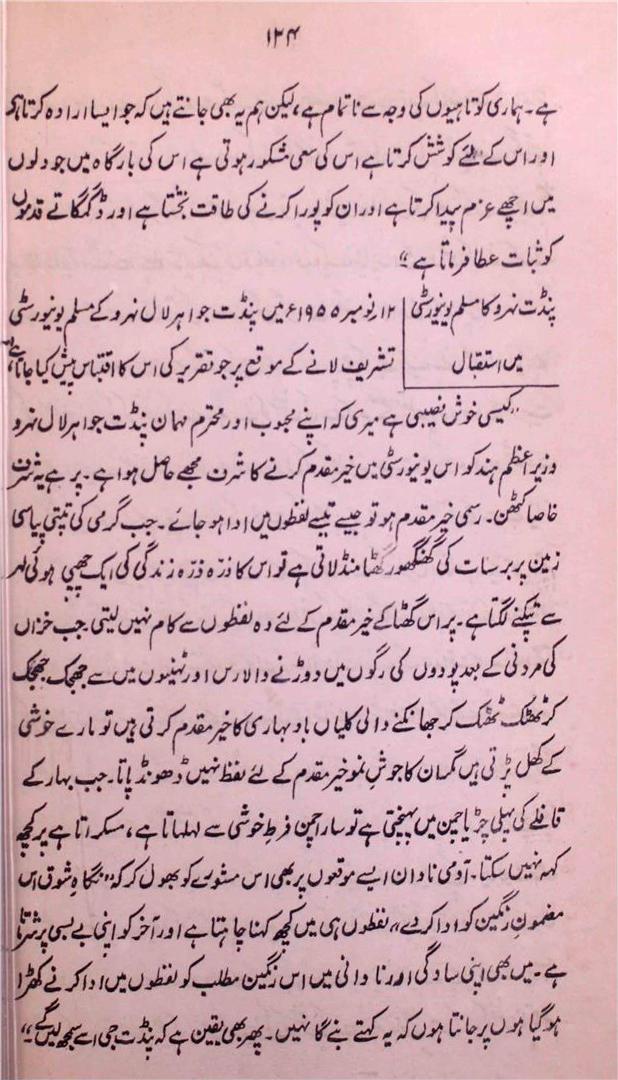 ۱۲۴
ہے۔ ہماری کوتاہیوں کی وجہ سے ناتمام ہے، لیکن ہم یہ بھی جانتے ہیں کہ جو ایسا ارادہ کرتا ہے
اور اس کے لئے کوشش کرتا ہے اس کی سعی مشکور ہوتی ہے اس کی بارگاہ میں جو دلوں
میں اچھے عزم پیدا کرتا ہے اور ان کو پورا کرنے کی طاقت بخشتا ہے اور ڈگمگاتے قدموں
کو ثبات عطا فرماتا ہے“
پنڈت نہرو کا مسلم یونیورسٹی
میں استقبال
۱۲؍نومبر ۱۹۵۵ء میں پنڈت جواہر لال نہرو کے مسلم یونیورسٹی
تشریف لانے کے موقع پر جو تقریر کی اس کا اقتباس پیش کیا جاتا ہے
”کیسی خوش نصیبی ہے میری کہ اپنے محبوب اور محترم مہمان پنڈت جواہر لال نہرو
وزیر اعظم ہند کو اس یونیورسٹی میں خیر مقدم کرنے کا شرف مجھے حاصل ہوا ہے۔ پر ہے یہ شرف
خاصا کٹھن۔ رسمی خیر مقدم ہو تو جیسے تیسے لفظوں میں ادا ہو جائے۔ جب گرمی کی تپتی پیاسی
زمین پر برسات کی گھنگھور گھٹا منڈلاتی ہے تو اس کا ذرّہ ذرّہ زندگی کی ایک چھپی ہوئی لہر
سے تپکنے لگتا ہے۔ پر اس گھٹا کے خیر مقدم کے لئے وہ لفظوں سے کام نہیں لیتی جب خزاں
کی مردنی کے بعد پودوں کی رگوں میں دوڑنے والا رس اور ٹہنیوں میں سے جھجک جھجک
کر ٹھٹک ٹھٹک کر جھانکنے والی کلیاں باد بہاری کا خیر مقدم کرتی ہیں تو مارے خوشی
کے کھل پڑتی ہیں مگر ان کا جوشِ نمو خیر مقدم کے لئے لفظ نہیں ڈھونڈ پاتا۔ جب بہار کے
قافلے کی پہلی چڑیا چمن میں پہنچتی ہے تو سارا چمن فرطِ خوشی سے لہلہاتا ہے، مسکراتا ہے پر کچھ
کہہ نہیں سکتا۔ آدمی نادان ایسے موقعوں پر بھی اس مشورے کو بھول کر کہ ”نگاہِ شوق اس
مضمونِ رنگین کو ادا کر دے“ لفظوں ہی میں کچھ کہنا چاہتا ہے اور آخر کو اپنی بے بسی پر شرماتا
ہے۔ میں بھی اپنی سادگی اور نادانی میں اس رنگین مطلب کو لفظوں میں ادا کرنے کھڑا
ہو گیا ہوں پر جانتا ہوں کہ یہ کہتے بنے گا نہیں۔ پھر بھی یقین ہے کہ پنڈت جی اسے سمجھ لیں گے“